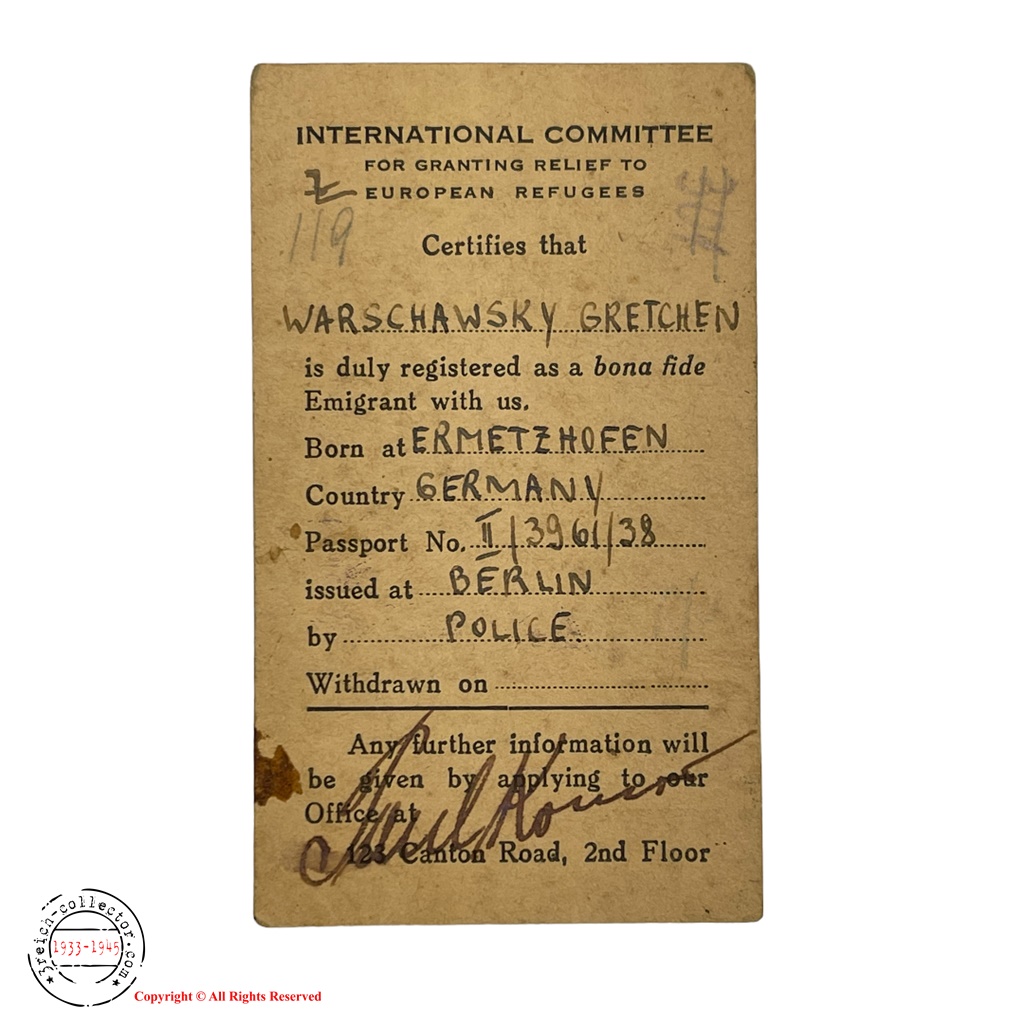 INTERNATIONAL COMMITTEE
FOR GRANTING RELIEF TO
EUROPEAN REFUGEES
119
Certifies that
WARSCHAWSKY GRETCHEN
is duly registered as a bona fide
Emigrant with us.
Born at ERMETZHOFEN
Country GERMANY
Passport No. II/3961/38
issued at BERLIN
by POLICE.
Withdrawn on
Any further information will
be given by applying to our
Office at
123 Canton Road, 2nd Floor
3reich-collector.com
1933-1945
Copyright © All Rights Reserved